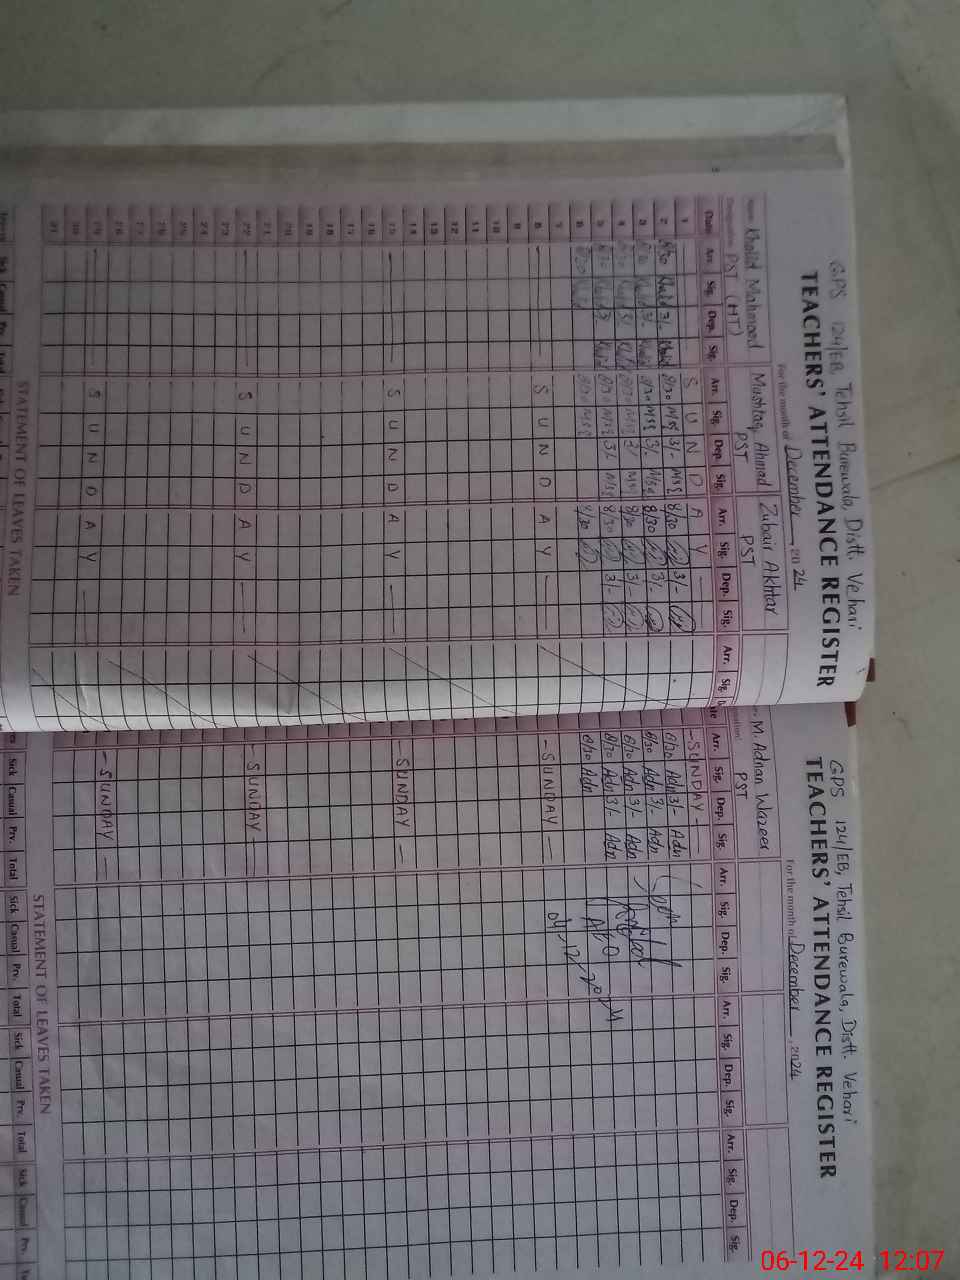 GPS 124/EB, Tehsil Burewala, Distt. Vehari
TEACHERS' ATTENDANCE REGISTER
For the month of December 2024
Name: Khalid Mahmood Mushtaq Ahmad Zubair Akhtar
Designation: PST (HT) PST PST
Date Arr. Sig. Dep. Sig. Arr. Sig. Dep. Sig. Arr. Sig. Dep. Sig. Arr. Sig.
1 SUNDAY
2 8/30 Khalid 3/- Khalid 8/30 MSq 3/- MSq 8/30 3/-
3 8/30 Khalid 3/- Khalid 8/30 MSq 3/- MSq 8/30 3/-
4 8/30 Khalid 3/- Khalid 8/30 MSq 3/- MSq 8/30 3/-
5 8/30 Khalid 3/- Khalid 8/30 MSq 3/- MSq 8/30 3/-
6 8/30 Khalid 8/30 MSq 8/30
7
8 SUNDAY
9
10
11
12
13
14
15 SUNDAY
16
17
18
19
20
21
22 SUNDAY
23
24
25
26
27
28
29 SUNDAY
30
31
STATEMENT OF LEAVES TAKEN
Sick Casual Prv. Total
GPS 124/EB, Tehsil Burewala, Distt. Vehari
TEACHERS' ATTENDANCE REGISTER
For the month of December, 2024
M. Adnan Wazeer
PST
Arr. Sig. Dep. Sig. Arr. Sig. Dep. Sig. Arr. Sig. Dep. Sig. Arr. Sig. Dep. Sig.
-SUNDAY-
8/30 Adn 3/- Adn
8/30 Adn 3/- Adn
8/30 Adn 3/- Adn
8/30 Adn 3/- Adn
8/30 Adn
AEO
04-12-2024
-SUNDAY-
-SUNDAY-
-SUNDAY-
-SUNDAY-
STATEMENT OF LEAVES TAKEN
Sick Casual Prv. Total Sick Casual Prv. Total Sick Casual Prv. Total Sick Casual Prv.
06-12-24 12:07